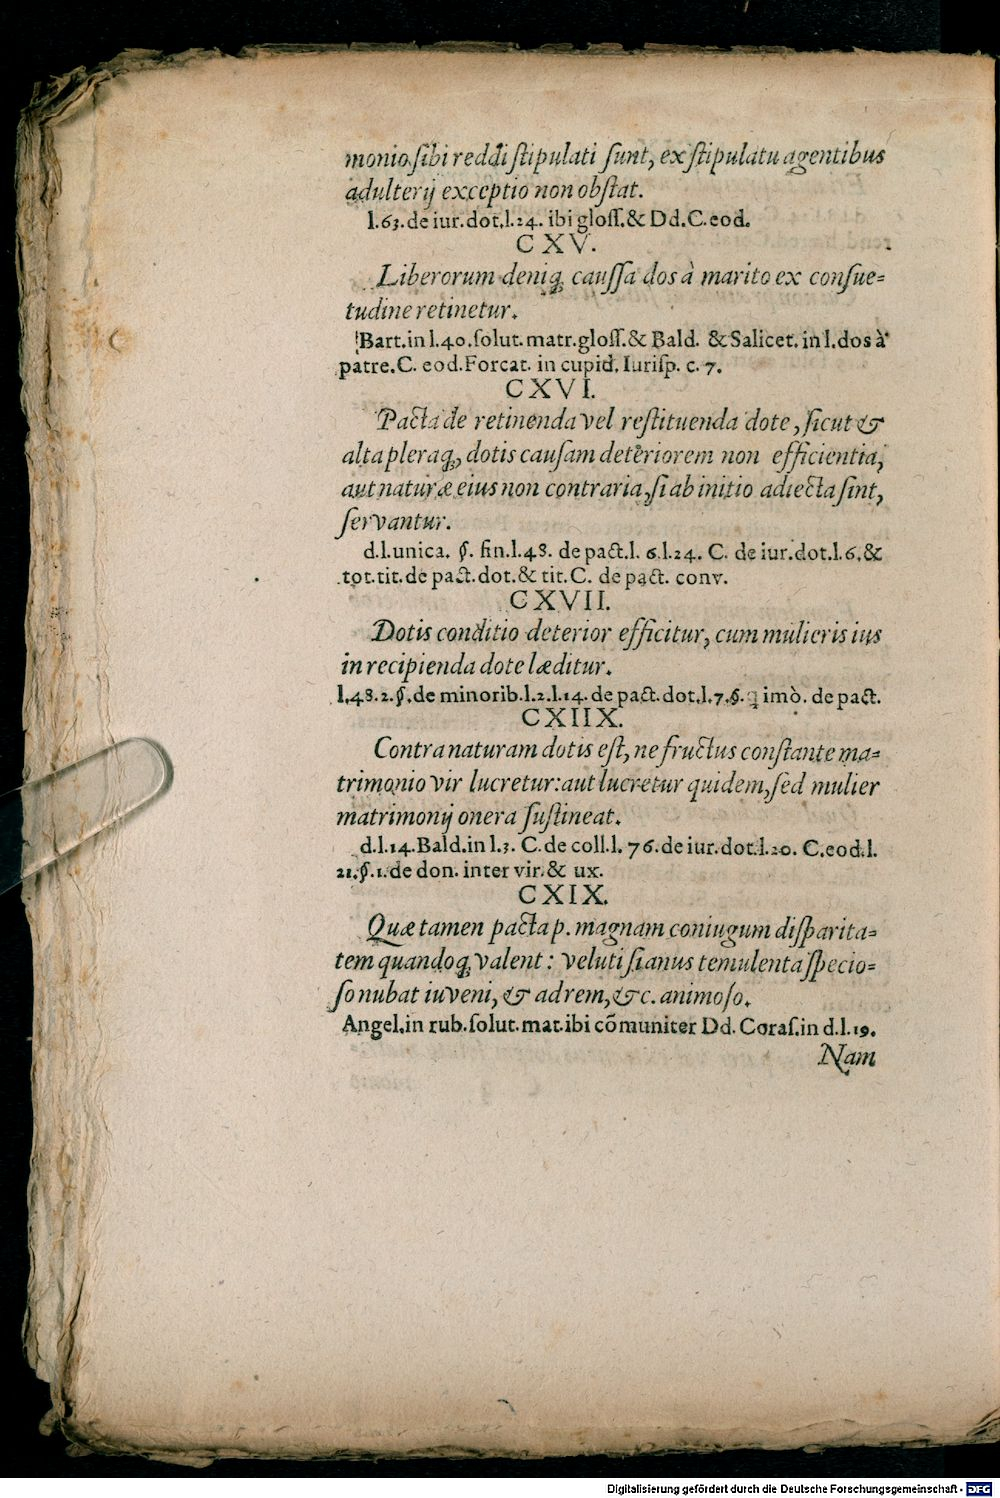 monio sibi reddi stipulati sunt, ex stipulatu agentibus
adulterij exceptio non obstat.
l.63. de iur. dot. l.24. ibi gloss. & Dd. C. eod.
CXV.
Liberorum deniq; caussa dos à marito ex consue=
tudine retinetur.
Bart. in l.40. solut. matr. gloss. & Bald. & Salicet. in l. dos à
patre. C. eod. Forcat. in cupid. Iurisp. c. 7.
CXVI.
Pacta de retinenda vel restituenda dote, sicut &
alta pleraq;, dotis causam deteriorem non efficientia,
aut naturæ eius non contraria, si ab initio adiecta sint,
servantur.
d. l. unica. §. fin. l.48. de pact. l. 6. l.24. C. de iur. dot. l.6. &
tot. tit. de pact. dot. & tit. C. de pact. conv.
CXVII.
Dotis conditio deterior efficitur, cum mulieris ius
in recipienda dote læditur.
l.48. 2. §. de minorib. l.2. l.14. de pact. dot. l.7. §. q imò. de pact.
CXIIX.
Contra naturam dotis est, ne fructus constante ma=
trimonio vir lucretur: aut lucretur quidem, sed mulier
matrimonij onera sustineat.
d. l.14. Bald. in l.3. C. de coll. l. 76. de iur. dot. l.20. C. eod. l.
21. §.1. de don. inter vir. & ux.
CXIX.
Quæ tamen pacta p. magnam coniugum disparita=
tem quandoq; valent: veluti si anus temulenta specio=
so nubat iuveni, & ad rem, &c. animoso.
Angel. in rub. solut. mat. ibi cõmuniter Dd. Coras. in d. l.19.
Nam
Digitalisierung gefördert durch die Deutsche Forschungsgemeinschaft - DFG